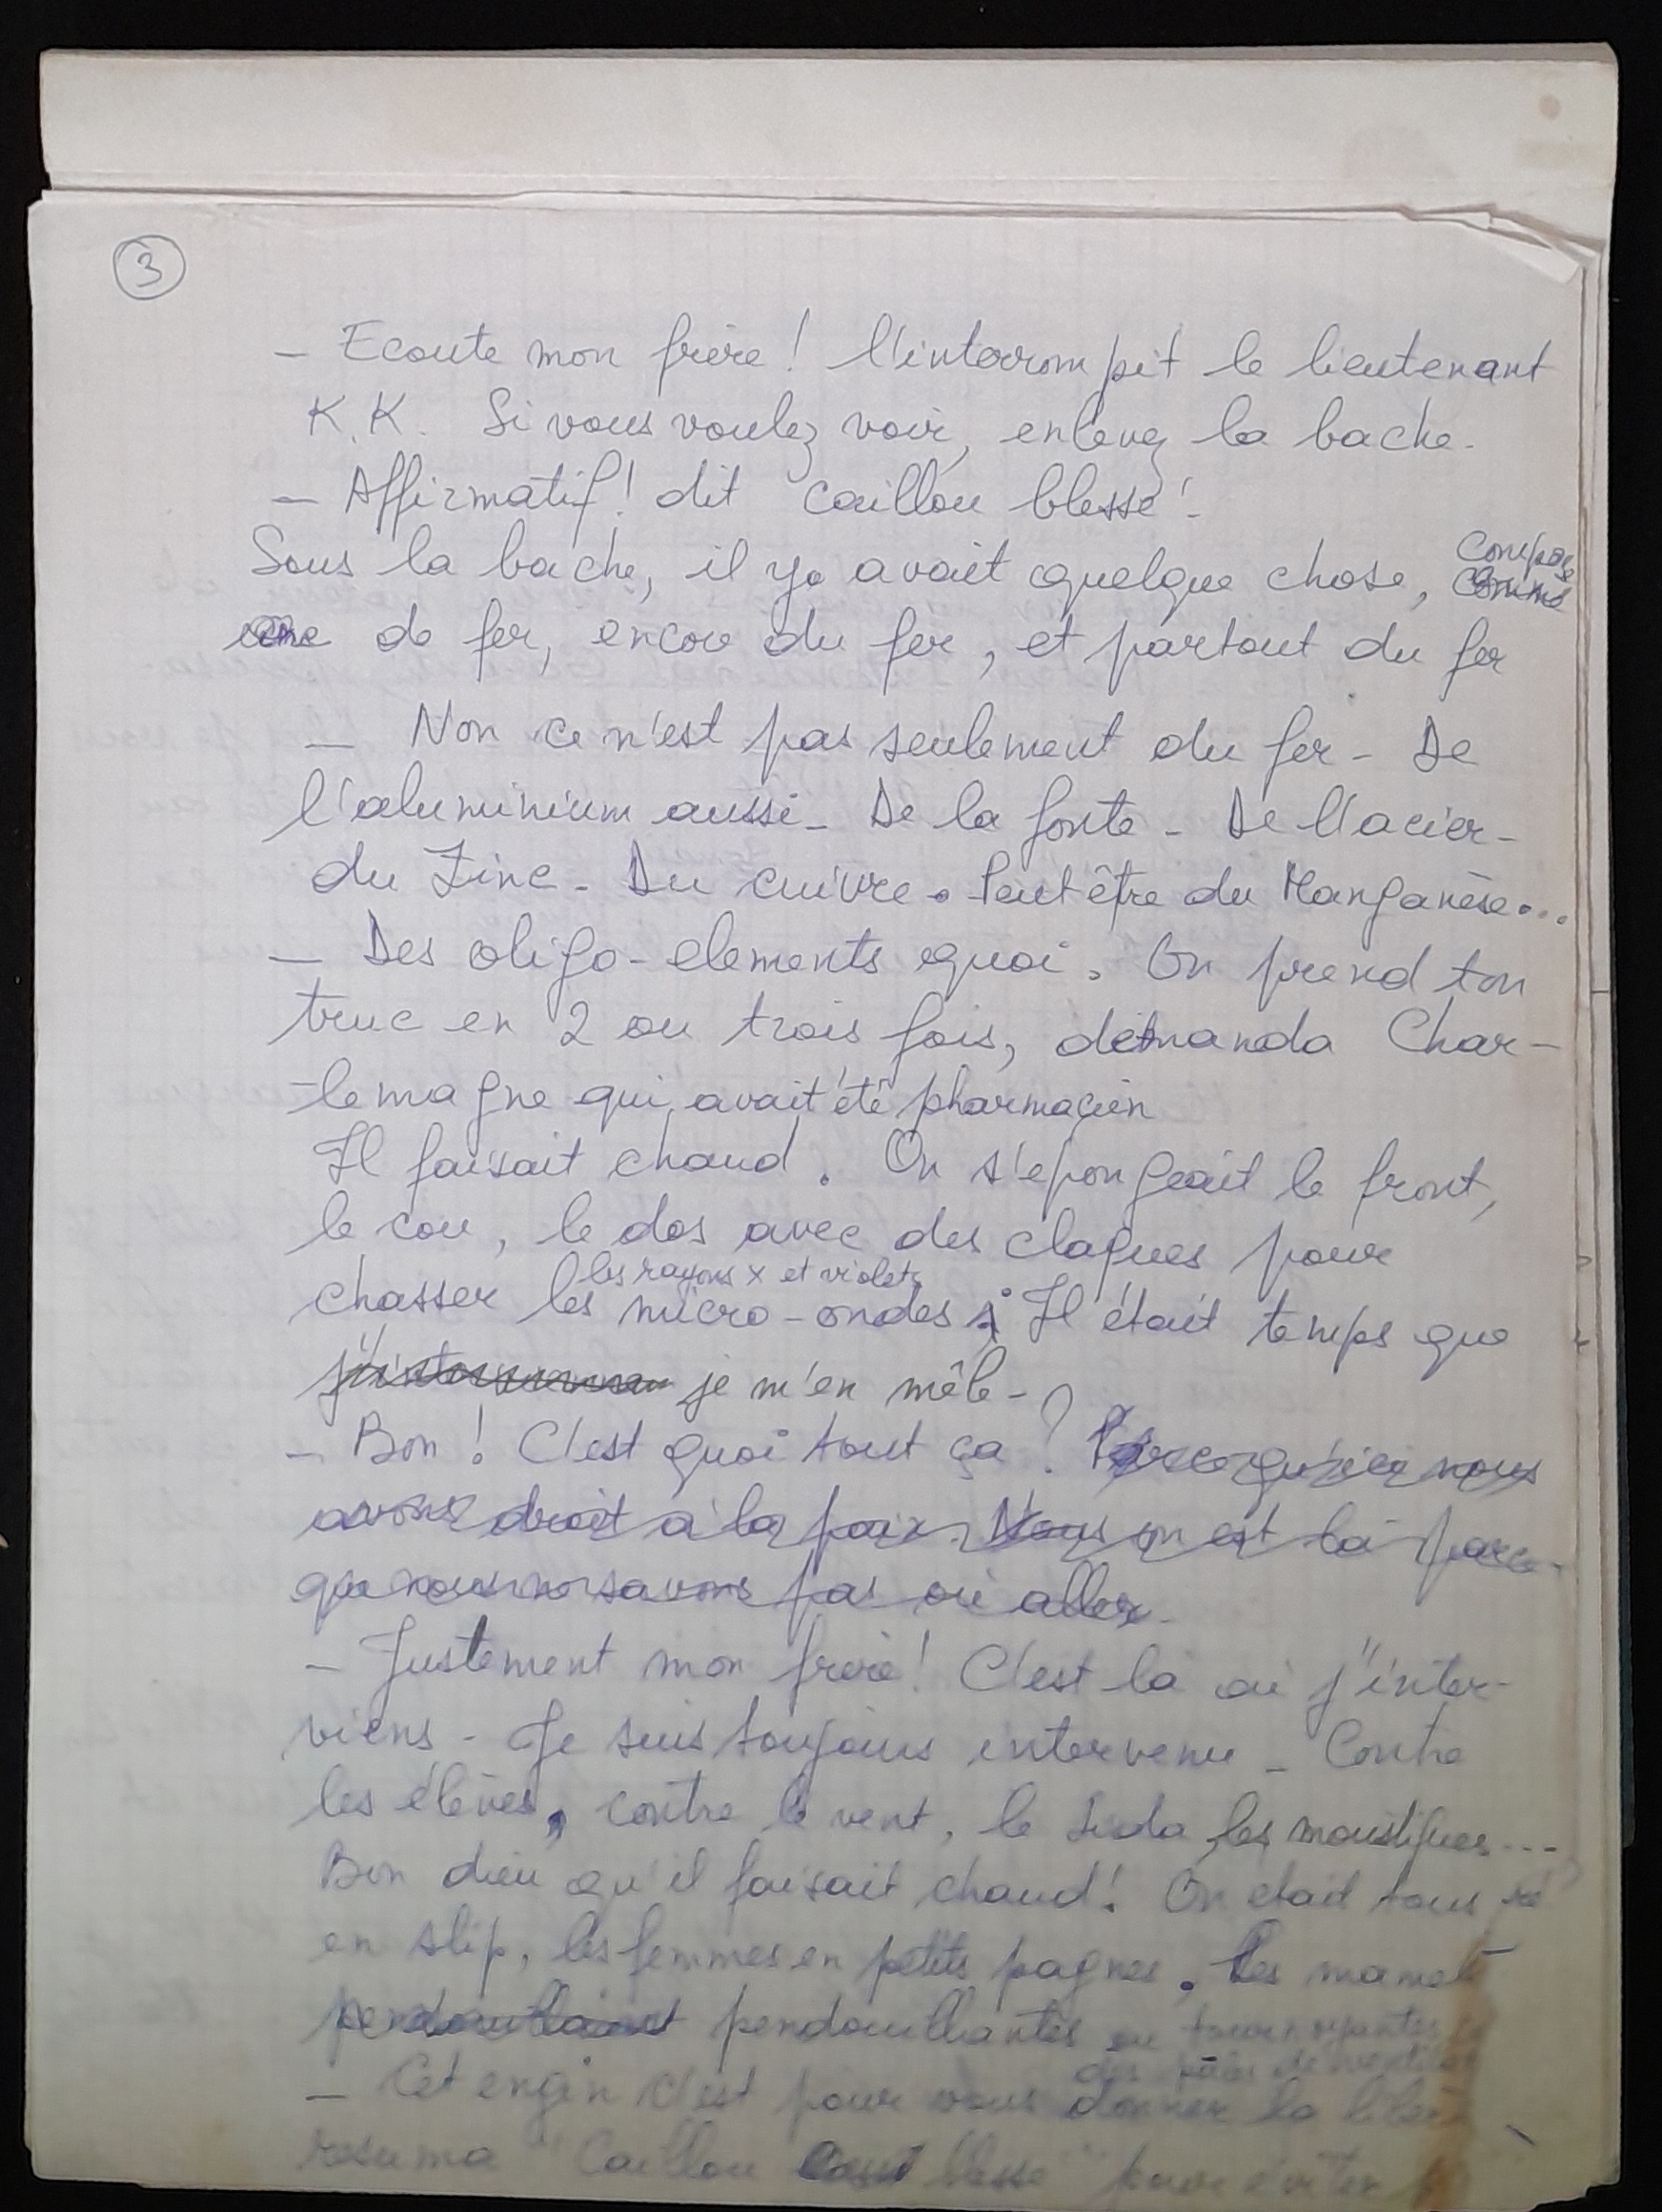 3
– Ecoute mon frère ! l'interrompit le lieutenant
K.K. Si vous voulez voir, enlevez la bache.
– Affirmatif ! dit Caillou blessé !
Sous la bache, il y a avait quelque chose, composé comme
une de fer, encore du fer, et partout du fer
– Non ce n'est pas seulement du fer – De
l'aluminium aussi – De la fonte – De l'acier –
du Zinc – Du cuivre. Peut être du Manganèse...
– Des oligo-elements quoi. On prend ton
truc en 2 ou trois fois, demanda Char–
–lemagne qui avait été pharmacien
Il faisait chaud. On s'epongeait le front,
le cou, le dos avec des claques pour
les rayons x et violets
chasser les micro-ondes ; Il était temps que
je m'en mêle –
– Bon ! C'est quoi tout ça ? Parce qu'ici nous
avons droit à la paix. Nous on est là parce-
que nous ne savons pas où aller.
– Justement mon frère ! C'est là où j'inter-
viens – Je suis toujours intervenu – Contre
les élèves, contre le vent, le Sida, les moustiques...
Bon dieu qu'il faisait chaud ! On etait tous
en slip, les femmes en petits pagnes. Les
pendouillaient pendouillantes ou tournoyantes
des
– Cet engin c'est pour vous donner la
resuma "Caillou blessé" pour éviter